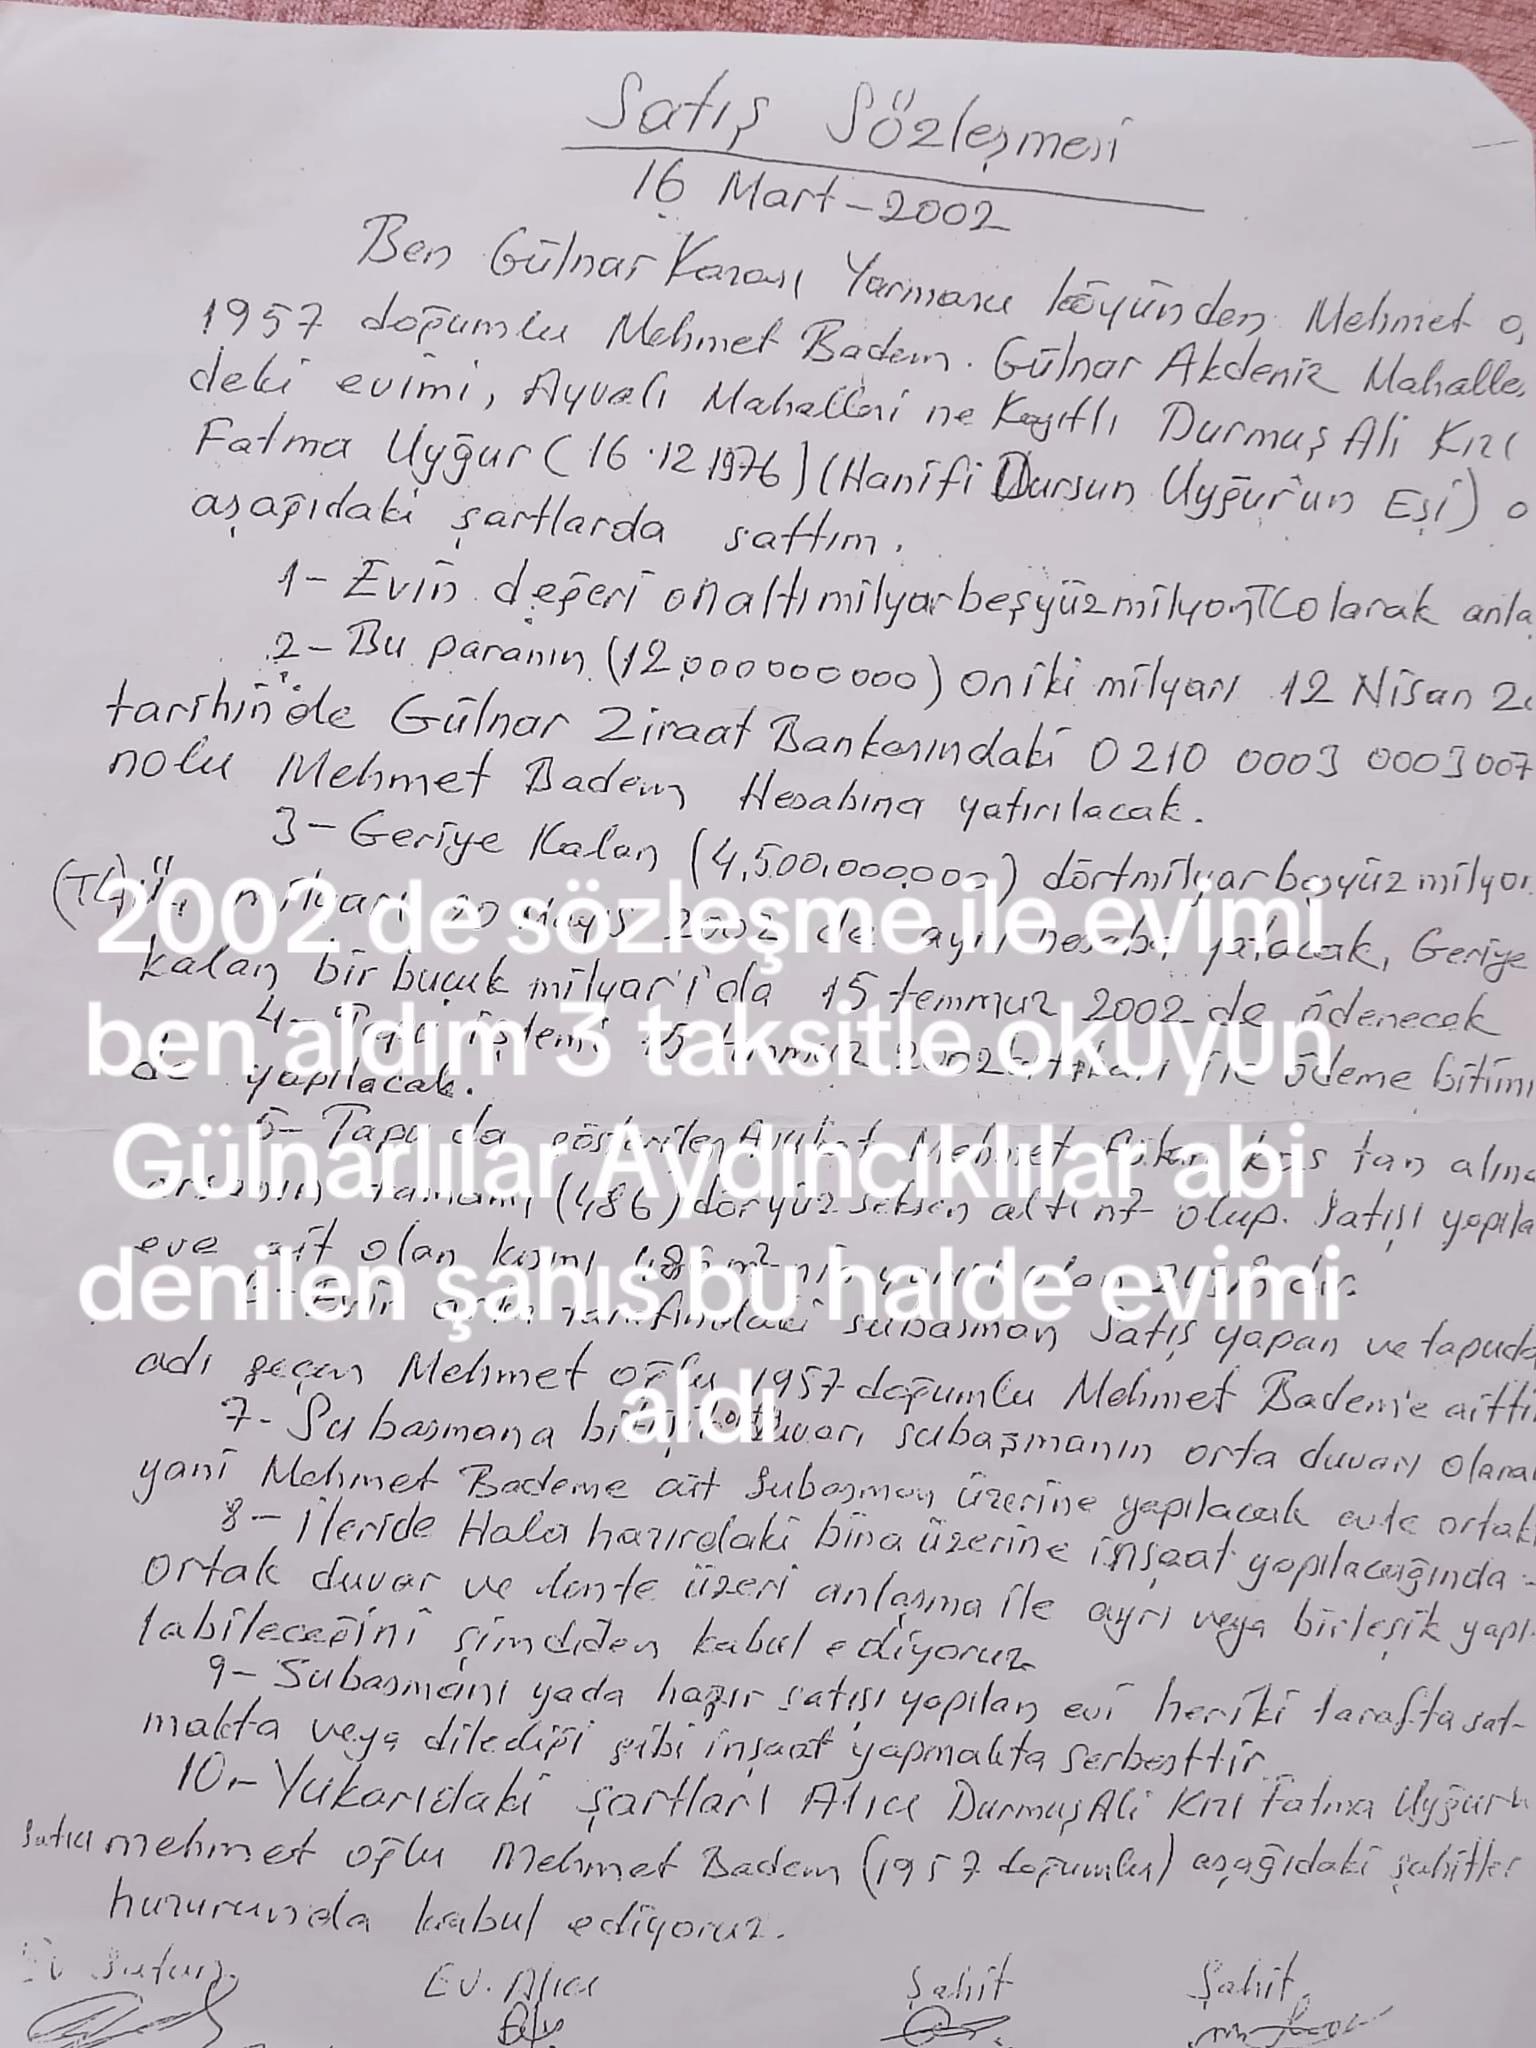 Satış Sözleşmesi
16 Mart-2002
Ben Gülnar Kazası Yarmasu köyünden Mehmet o,
1957 doğumlu Mehmet Badem. Gülnar Akdeniz Mahalles
deki evimi, Ayvalı Mahallesi ne Kayıtlı Durmuş Ali Kızı
Fatma Uyğur (16.12 1976) (Hanifi Dursun Uyğur'un Eşi) o
aşağıdaki şartlarda sattım.
1- Evin değeri onaltımilyarbeşyüzmilyonTL olarak anla
2- Bu paranın (12,000000000) oniki milyarı 12 Nisan 20
tarihinde Gülnar Ziraat Bankasındaki 0210 0003 0003007
nolu Mehmet Badem Hesabına yatırılacak.
3- Geriye Kalan (4,500,000,000) dörtmilyarbeşyüzmilyon
(TL) Üç milyarı 20 Mayıs 2002 de aynı hesaba yatacak, Geriye
kalan bir buçuk milyar'ı da 15 temmuz 2002 de ödenecek
4- Tapu işlemi 15 temmuz 2002 itibarı ile ödeme bitimi
de yapılacak.
5- Tapu da gösterilen Avukat Mehmet tan alına
arsanın tamamı (486) döryüz seksen altı m² olup. Satışı yapıla
eve ait olan kısmı 486 m² nin yarısı olan 243 dir.
6- Evin arka tarafındaki subasman Satış yapan ve tapuda
adı geçen Mehmet oğlu 1957 doğumlu Mehmet Badem'e aittir
7- Subasmana bitişik duvarı subaşmanın orta duvarı olarak
yani Mehmet Bademe ait Subasman üzerine yapılacak evle ortak
8- İleride Hala hazırdaki bina üzerine inşaat yapılacağında -
ortak duvar ve lente üzeri anlaşma ile ayrı veya birleşik yapı-
labileceğini şimdiden kabul ediyoruz
9- Subasmanı yada hazır satışı yapılan evi heriki tarafta sat-
makta veya dilediği gibi inşaat yapmakta serbesttir.
10.- Yukarıdaki şartları Alıcı DurmuşAli Kızı Fatma Uyğur
Satıcı mehmet oğlu Mehmet Badem (1957 doğumlu) aşağıdaki şahitler
huzurunda kabul ediyoruz.
Ev Satan
Ev. Alıcı
Şahit
Şahit
2002 de sözleşme ile evimi
ben aldım 3 taksitle okuyun
Gülnarlılar Aydıncıklılar abi
denilen şahıs bu halde evimi
aldı